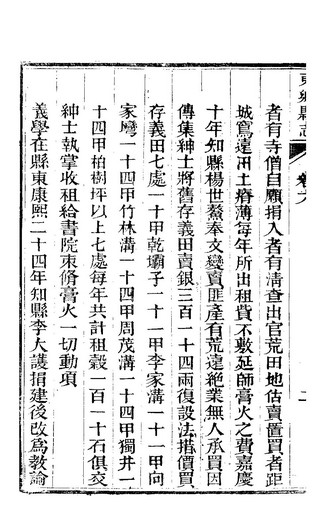 東鄉縣志
卷六
二
者有寺僧自願捐入者有清查出官荒田地估賣置買者距
城窵遠田土瘠薄每年所出租貲不敷延師膏火之費嘉慶
十年知縣楊世鰲奉文變賣匪產有荒遠絶業無人承買因
傳集紳士將舊存義田賣銀三百一十四兩復設法搭價買
存義田七處一十甲乾壩子一十一甲李家溝一十一甲向
家灣一十四甲竹林溝一十四甲周茂溝一十四甲獨井一
十四甲柏樹坪以上七處每年共計租穀一百一十石俱交
紳士執掌收租給書院束脩膏火一切動項
義學在縣東康熙二十四年知縣李大護捐建後改爲教諭